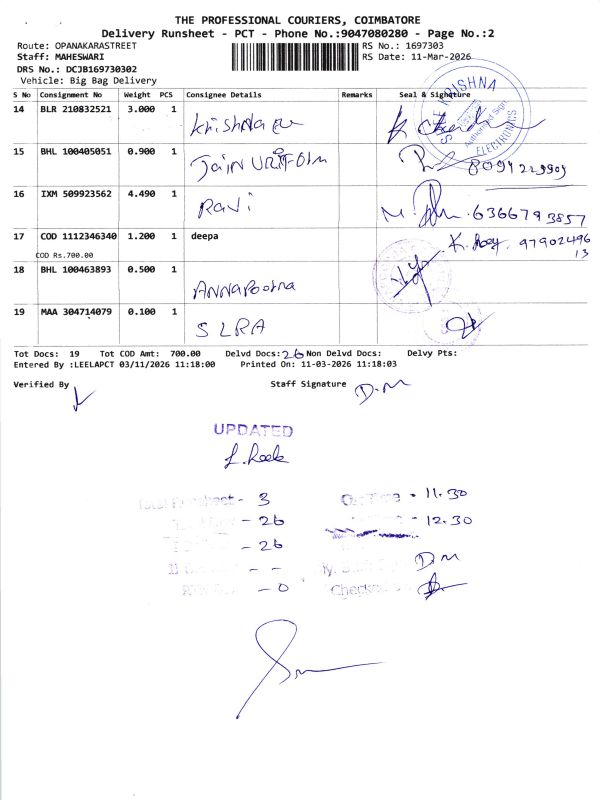 THE PROFESSIONAL COURIERS, COIMBATORE
Delivery Runsheet - PCT - Phone No.:9047080280 - Page No.:2
Route: OPANAKARASTREET RS No.: 1697303
Staff: MAHESWARI RS Date: 11-Mar-2026
DRS No.: DCJB169730302
Vehicle: Big Bag Delivery
S No Consignment No Weight PCS Consignee Details Remarks Seal & Signature
14 BLR 210832521 3.000 1
KRISHNA ELECTRONICS
Authorised Sign.
15 BHL 100405051 0.900 1 Jain 8094229909
16 IXM 509923562 4.490 1 Ravi 6366793857
17 COD 1112346340 1.200 1 deepa 9790249613
COD Rs.700.00
18 BHL 100463893 0.500 1 Annapoorna
19 MAA 304714079 0.100 1 SLRA
Tot Docs: 19 Tot COD Amt: 700.00 Delvd Docs: 26 Non Delvd Docs: Delvy Pts:
Entered By :LEELAPCT 03/11/2026 11:18:00 Printed On: 11-03-2026 11:18:03
Verified By Staff Signature D.M
UPDATED
- 3 - 11.30
- 26 - 12.30
- 26
- - D.M
- 0 Checked